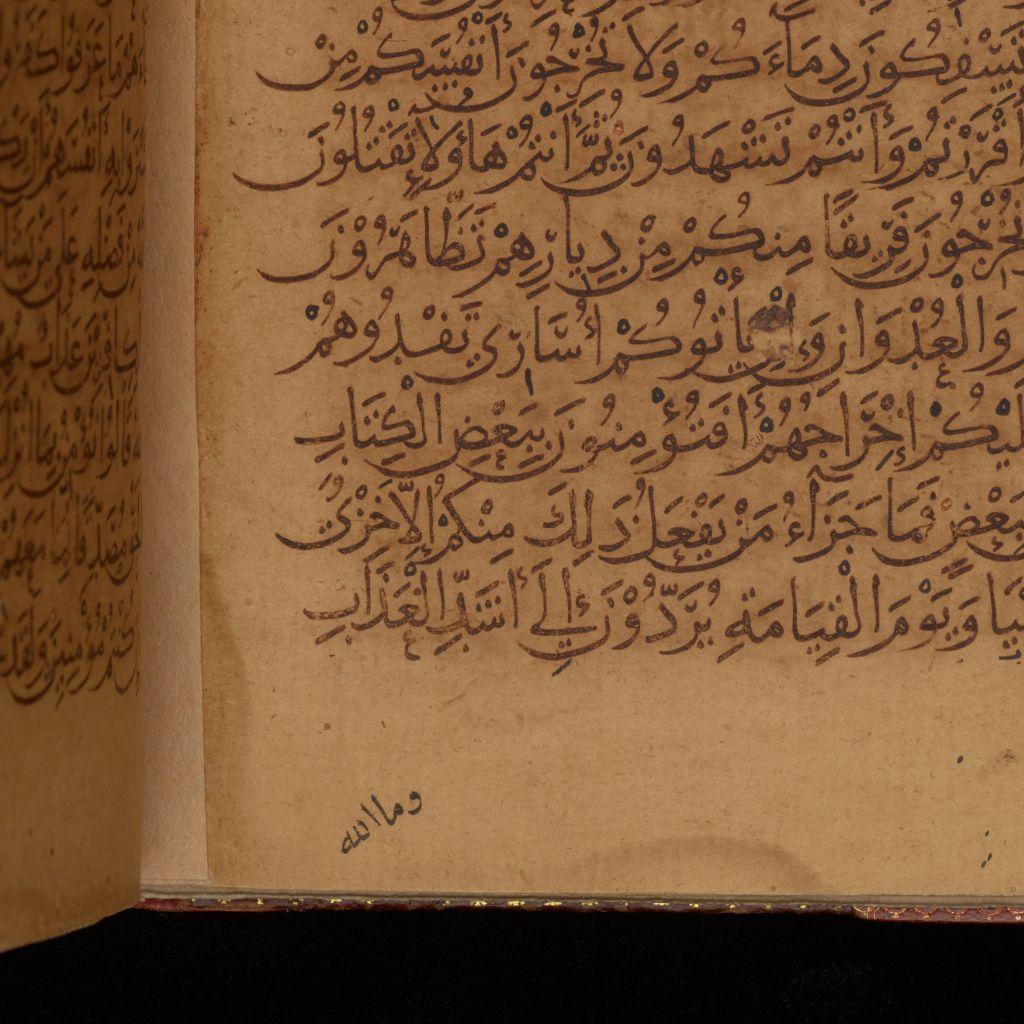 تَسْفِكُونَ دِمَاءَكُمْ وَلَا تُخْرِجُونَ أَنْفُسَكُمْ مِنْ
أَقْرَرْتُمْ وَأَنْتُمْ تَشْهَدُونَ ثُمَّ أَنْتُمْ هَاؤُلَاءِ تَقْتُلُونَ
تُخْرِجُونَ فَرِيقًا مِنكُمْ مِنْ دِيَارِهِمْ تَظَّاهَرُوْنَ
وَالْعُدْوَانِ وَإِنْ يَأْتُوكُمْ أُسَارَى تَفْدُوهُمْ
عَلَيْكُمْ إِخْرَاجُهُمْ أَفَتُؤْمِنُونَ بِبَعْضِ الْكِتَابِ
بِبَعْضٍ فَمَا جَزَاءُ مَنْ يَفْعَلُ ذَلِكَ مِنْكُمْ إِلَّا خِزْيٌ
وَيَوْمَ الْقِيَامَةِ يُرَدُّوْنَ إِلَى أَشَدِّ الْعَذَابِ
وما الله
مَا عَرَفُوا
بِهِ أَنْفُسَهُمْ أَنْ
مِنْ فَضْلِهِ عَلَى مَنْ يَشَاءُ
عَذَابٌ
قَالُوا نُؤْمِنُ بِمَا أُنْزِلَ
مُصَدِّقًا لِمَا مَعَهُمْ
كُنْتُمْ مُؤْمِنِينَ وَلَقَدْ